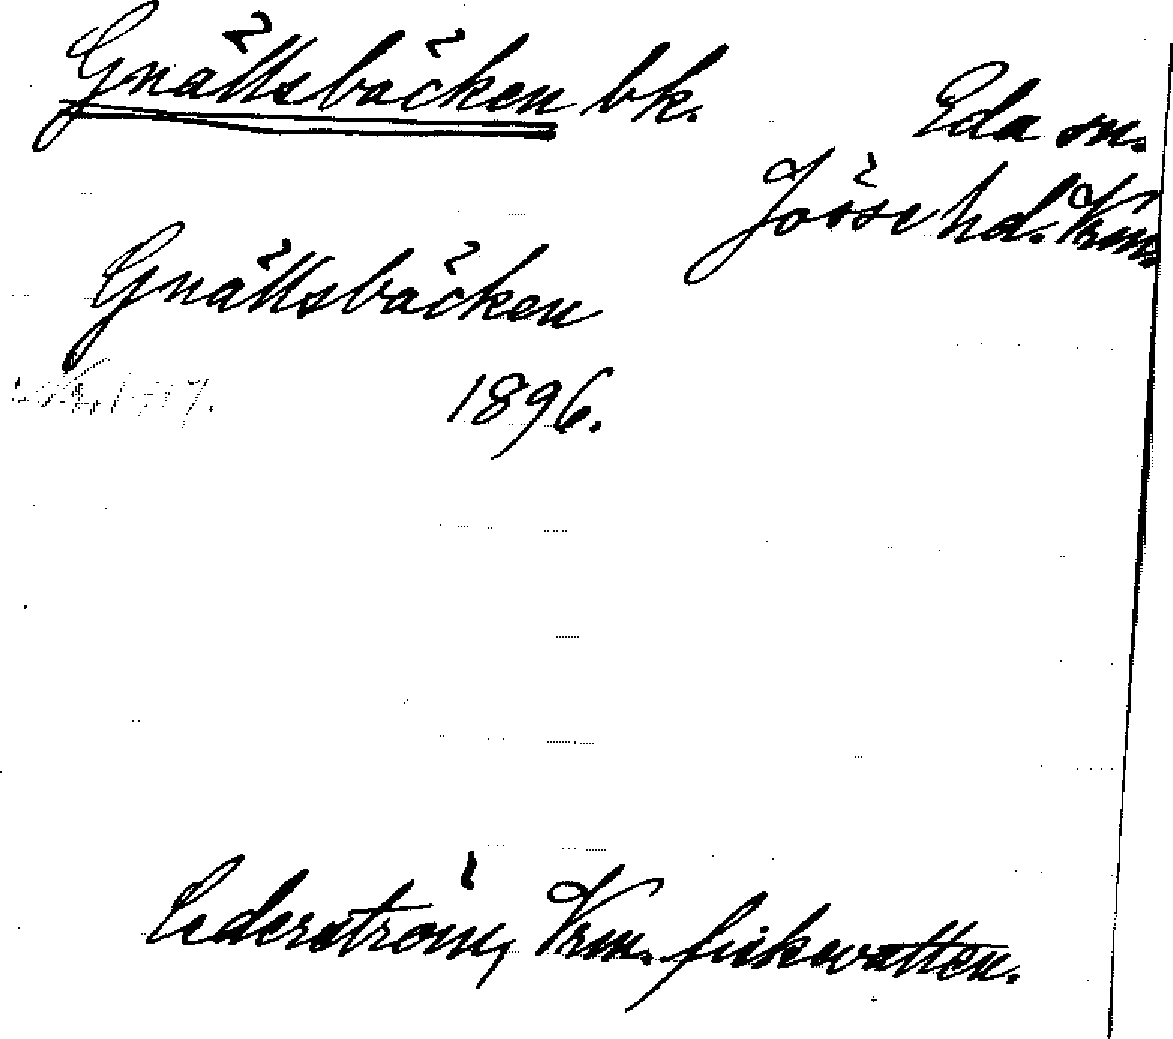 Gnällsbäcken bk.
Eda sn.
Jösse hd. Vrm.
Gnällsbäcken
1896.
Cederström, Vrm. fiskevatten.